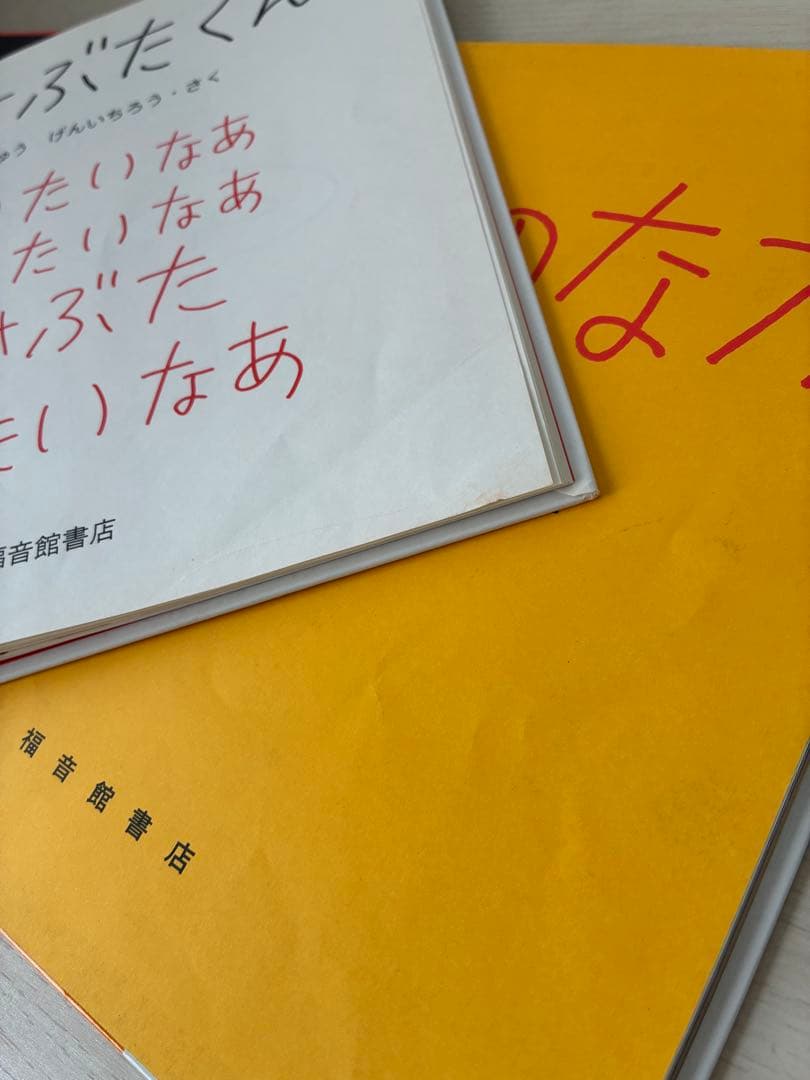 ぶたくん
げんいちろう・さく
たいなあ
たいなあ
ぶた
たいなあ
福音館書店
のなか
福音館書店